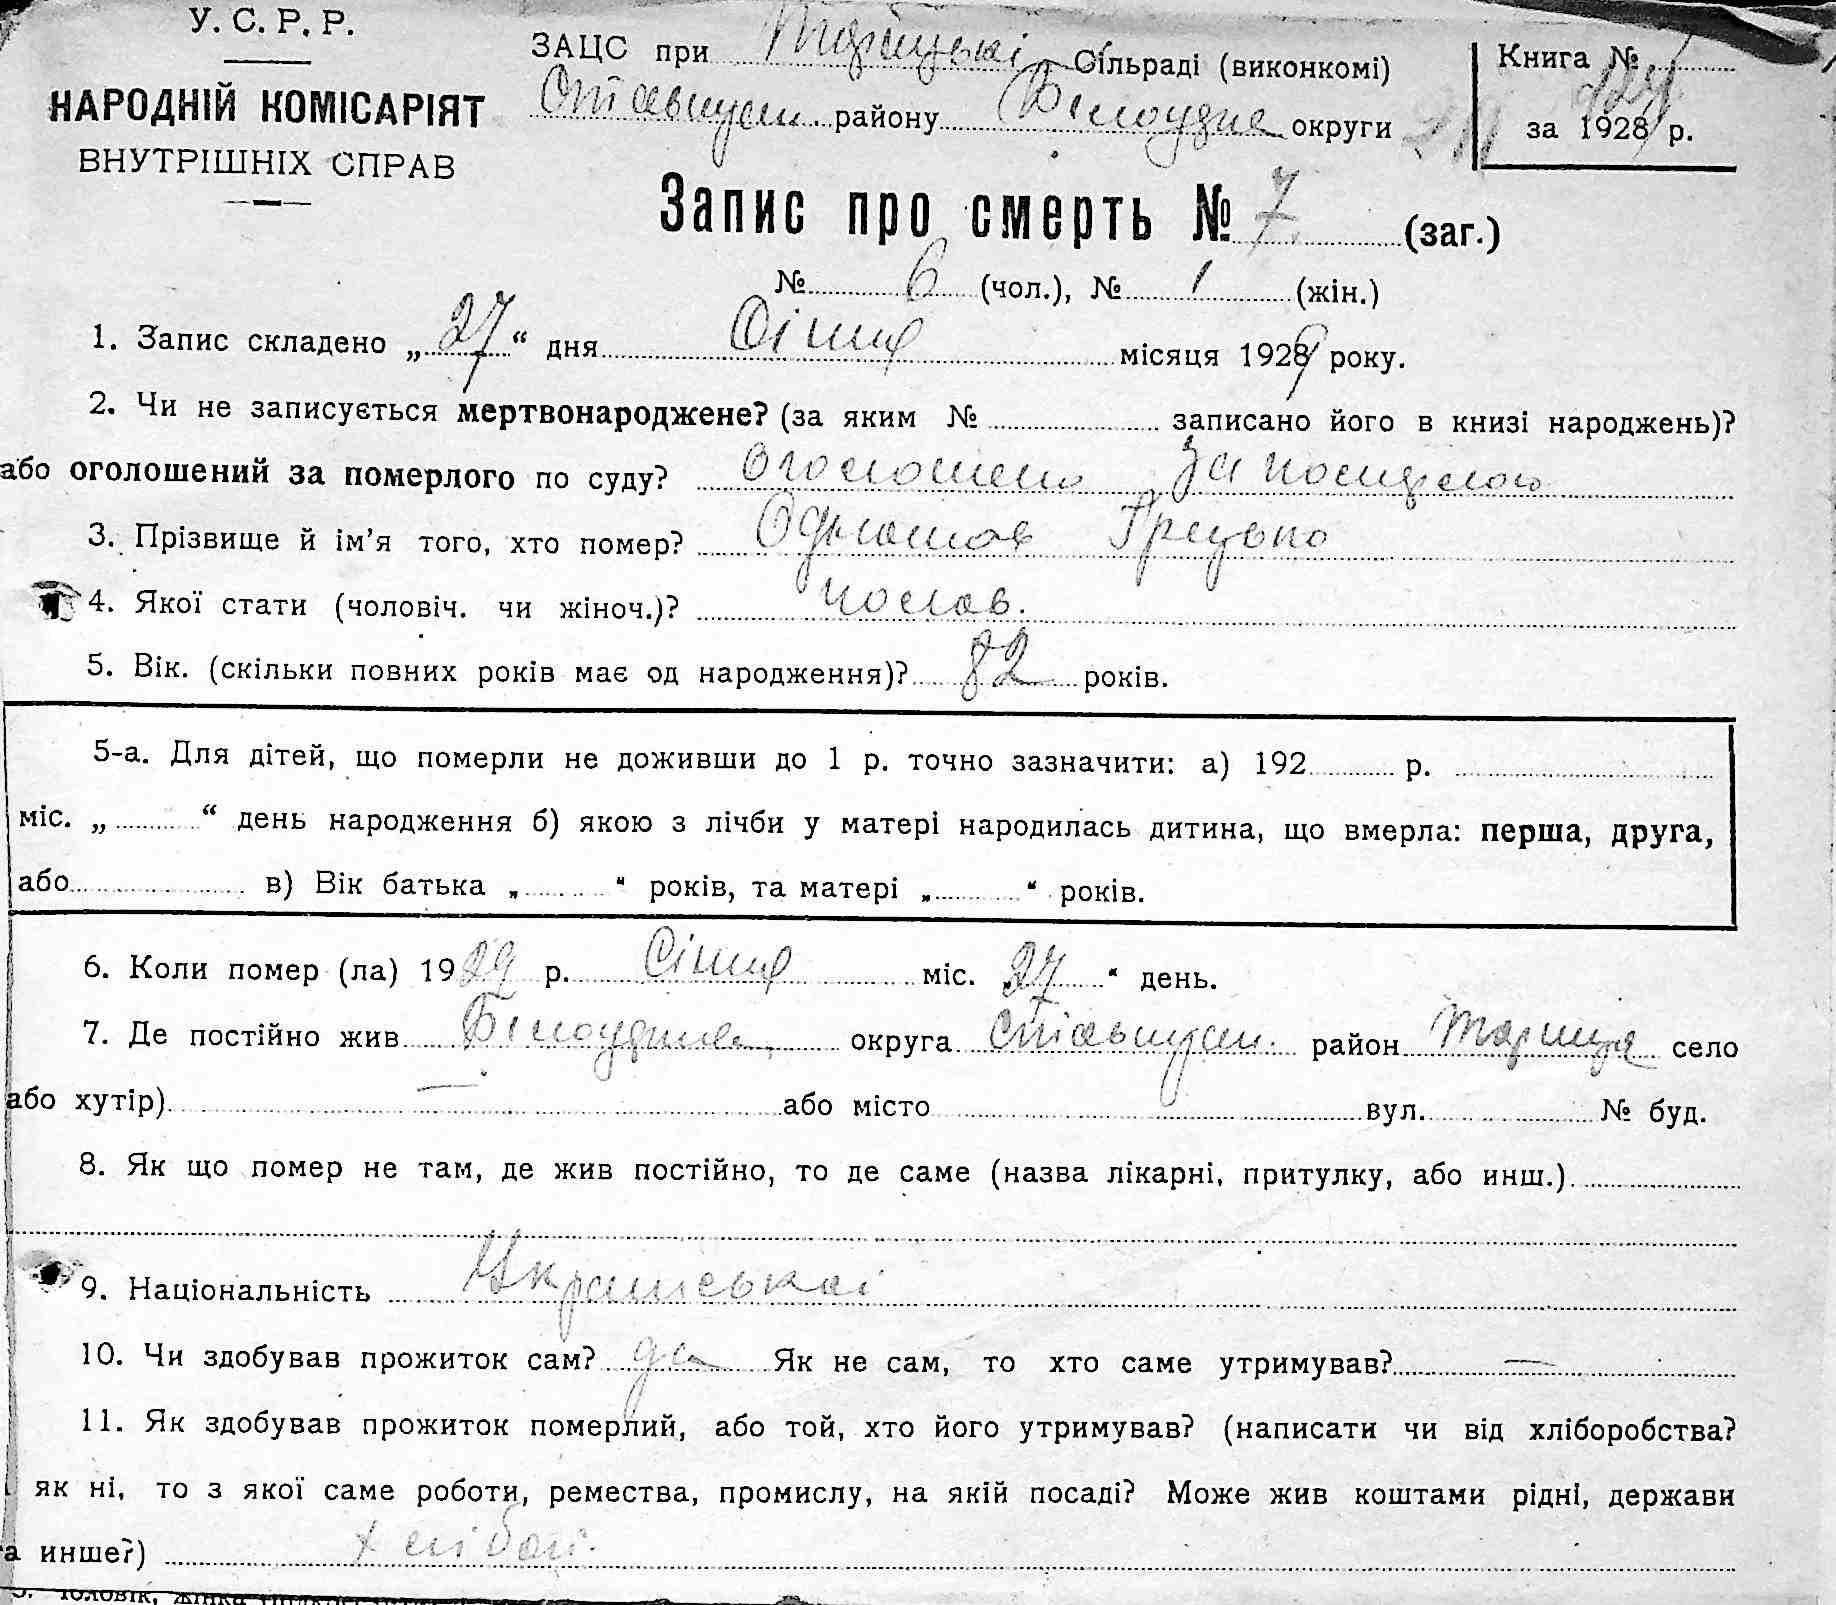 У. С. Р. Р.
НАРОДНІЙ КОМІСАРІЯТ
ВНУТРІШНІХ СПРАВ
ЗАЦС при Торицькі Сільраді (виконкомі)
Ставищан. району Білоцерк округи
Книга №
за 1929 р.
Запис про смерть № 7 (заг.)
№ 6 (чол.), № 1 (жін.)
1. Запис складено „27“ дня Січня місяця 1929 року.
2. Чи не записується мертвонароджене? (за яким № записано його в книзі народжень)?
або оголошений за померлого по суду? за
3. Прізвище й ім'я того, хто помер? Грицько
4. Якої стати (чоловіч. чи жіноч.)? чолов.
5. Вік. (скільки повних років має од народження)? 82 років.
5-а. Для дітей, що померли не доживши до 1 р. точно зазначити: а) 192 р.
міс. „ “ день народження б) якою з лічби у матері народилась дитина, що вмерла: перша, друга,
або в) Вік батька „ “ років, та матері „ “ років.
6. Коли помер (ла) 1929 р. Січня міс. 27 “ день.
7. Де постійно жив округа Ставищан. район Ториця село
або хутір) — або місто вул. № буд.
8. Як що помер не там, де жив постійно, то де саме (назва лікарні, притулку, або инш.)
9. Національність Українські
10. Чи здобував прожиток сам? да Як не сам, то хто саме утримував? —
11. Як здобував прожиток померлий, або той, хто його утримував? (написати чи від хліборобства?
як ні, то з якої саме роботи, ремества, промислу, на якій посаді? Може жив коштами рідні, держави
та инше?) хлібор.